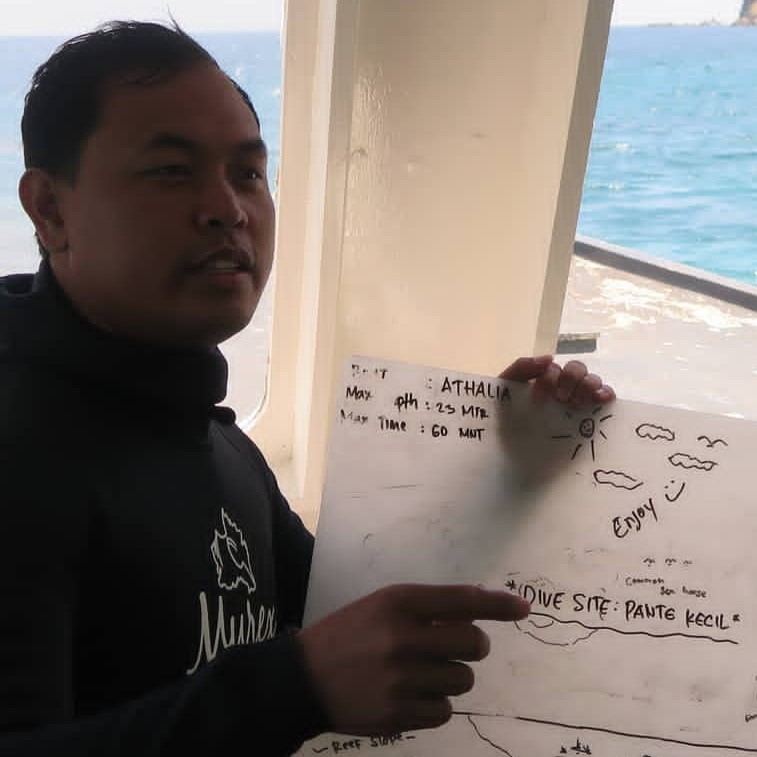 : ATHALIA
Max pth : 23 MTR
Max Time : 60 MNT
Enjoy
Common
Sea horse
*DIVE SITE: PANTE KECIL*
Murex
- Reef Slope -